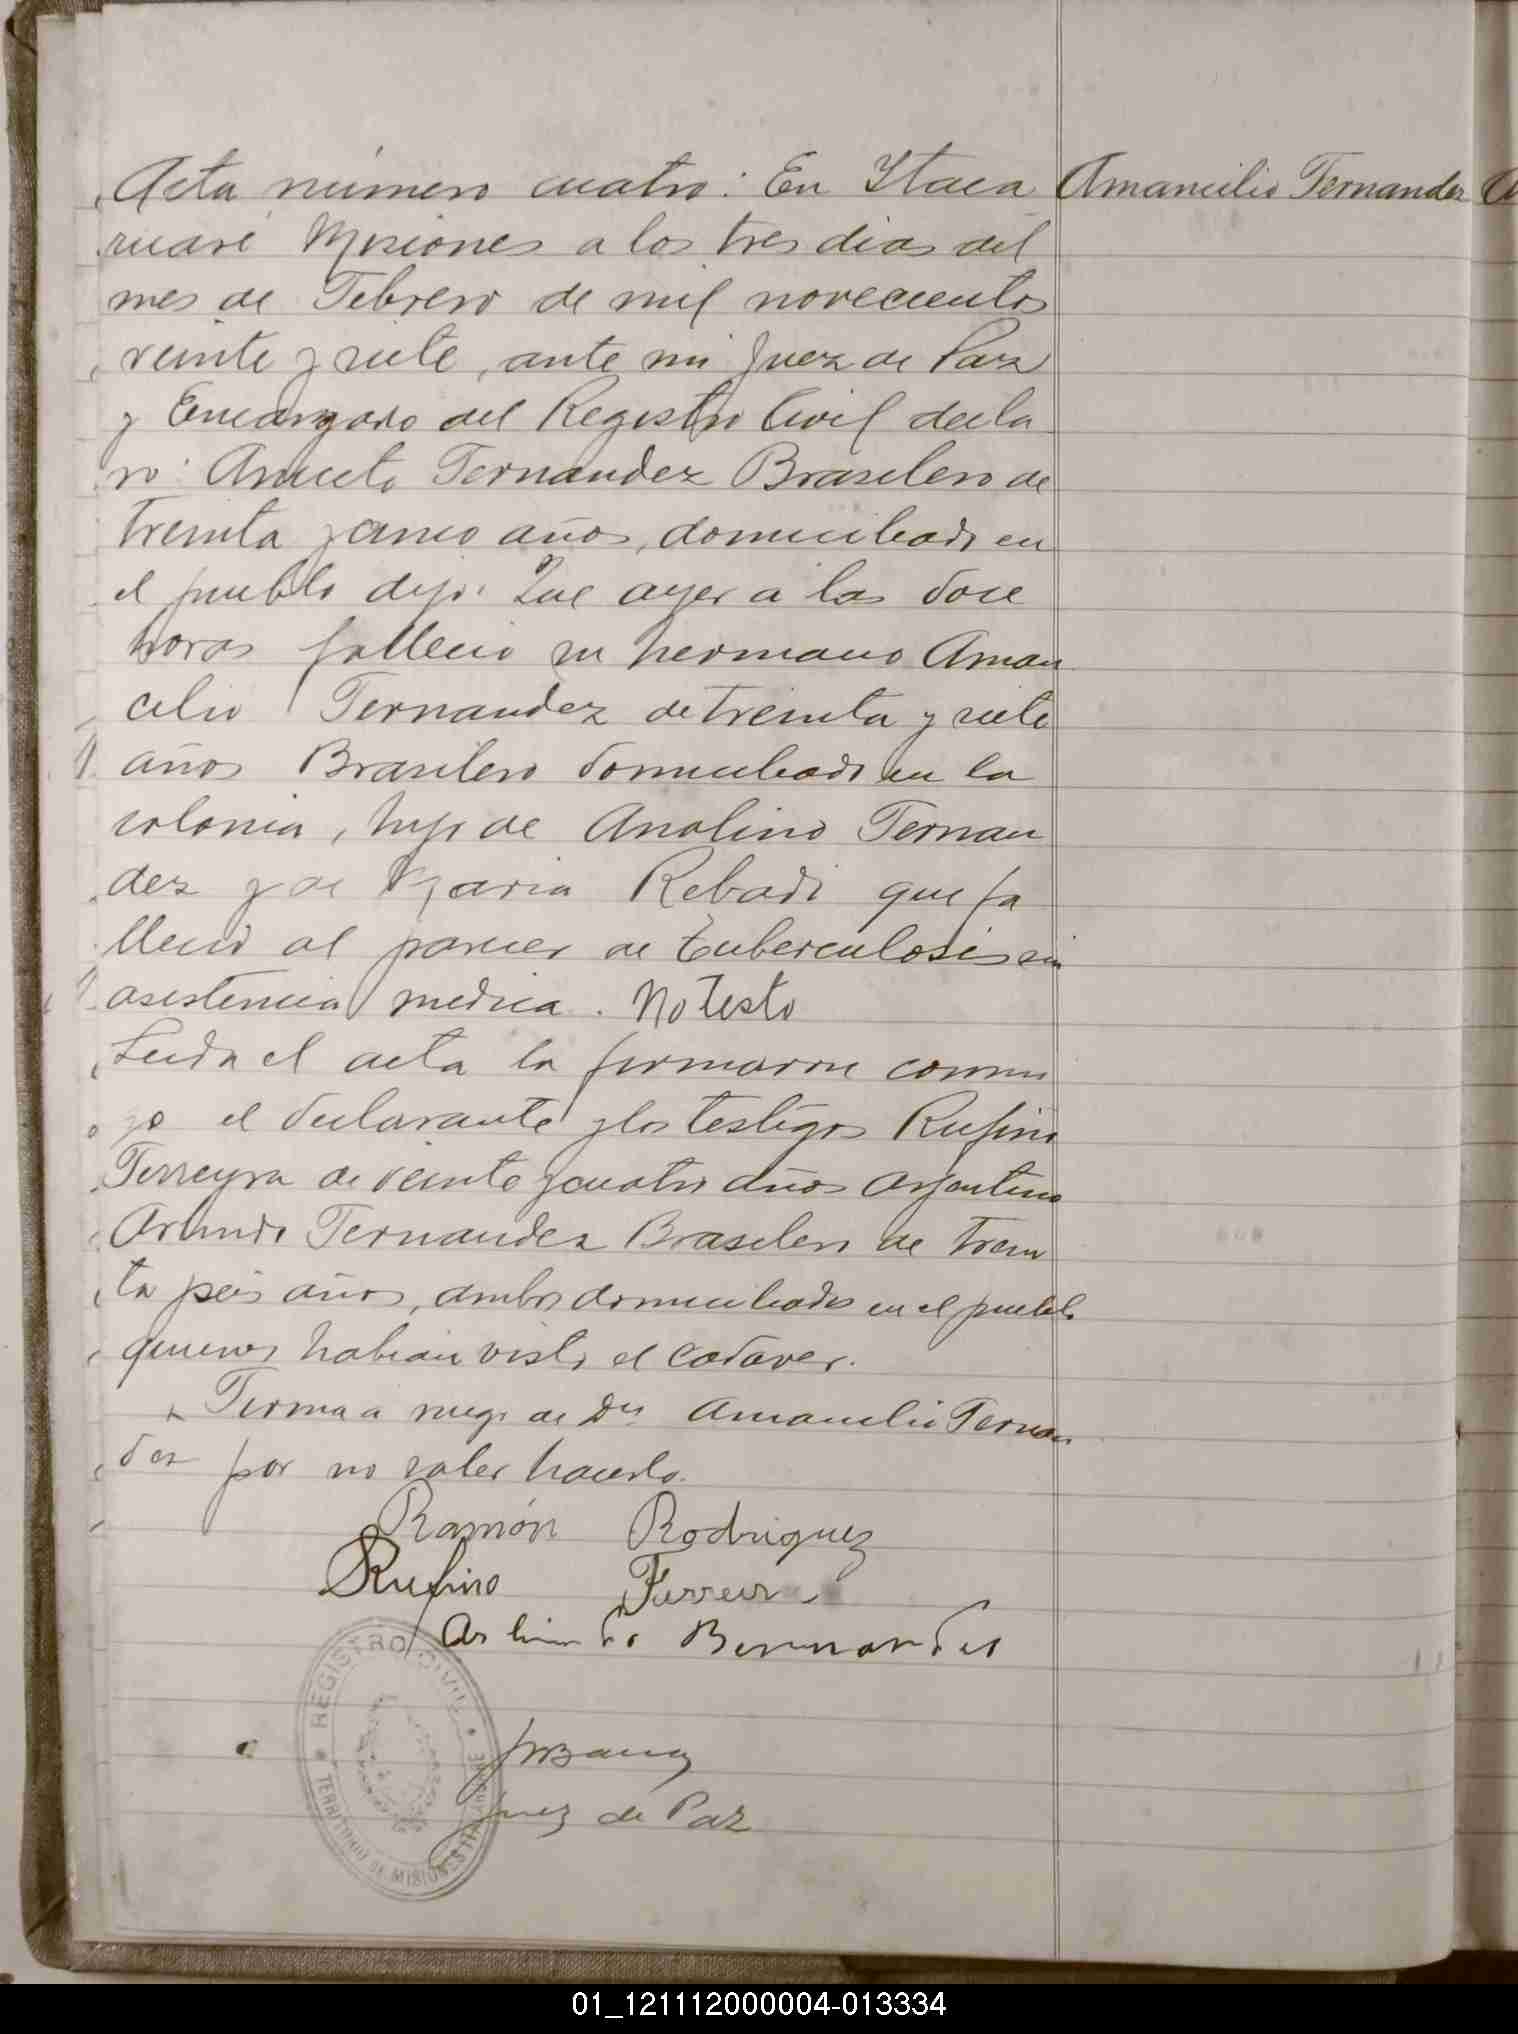 Acta número cuatro: En Itaca
Amancilio Fernandez
ruaré Misiones a los tres dias del
mes de Febrero de mil novecientos
veinte y siete, ante mi Juez de Paz
y Encargado del Registro Civil decla
ro: Aniceto Fernandez Brasilero de
treinta y cinco años, domiciliado en
el pueblo dijo: Que ayer a las doce
horas fallecio su hermano Aman
cilio Fernandez de treinta y siete
años Brasilero domiciliado en la
colonia, hijo de Analino Fernan
dez y de Maria Rebadi que fa
llecio al parecer de tuberculosis sin
asistencia medica. No testo
Leida el acta la firmaron conmi
go el declarante y los testigos Rufino
Ferreyra de veinte y cuatro años Argentino
Arlindo Fernandez Brasilero de trein
ta seis años, ambos domiciliados en el pueblo
quienes habian visto el cadaver.
Firma a ruego de Dn Amancilio Fernan
dez por no saber hacerlo.
Ramón Rodriguez
Rufino Ferreira
Arlindo Bernardes
Juez de Paz
REGISTRO CIVIL
TERRITORIO DE MISIONES ITACARUARE
01_121112000004-013334